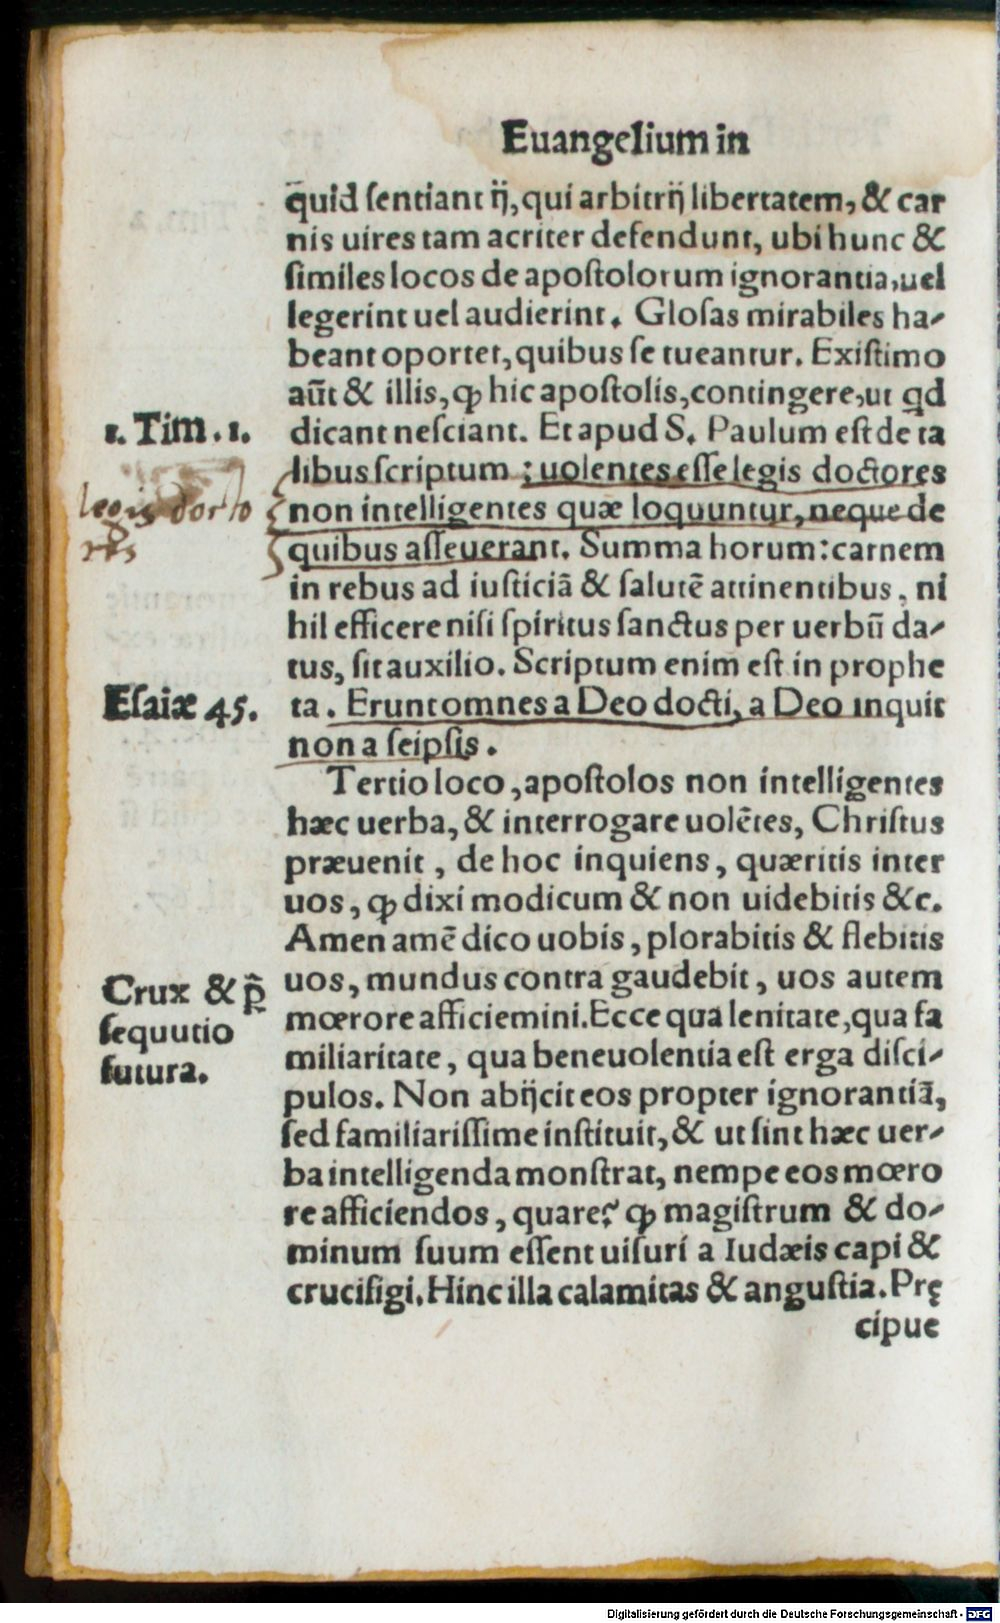 Euangelium in
q̄uid ſentiant ij, qui arbitrij libertatem, & car
nis uires tam acriter defendunt, ubi hunc &
ſimiles locos de apoſtolorum ignorantia, uel
legerint uel audierint. Gloſas mirabiles ha-
beant oportet, quibus ſe tueantur. Exiſtimo
aūt & illis, ꝙ hic apoſtolis, contingere, ut qd
1. Tim. 1.
dicant neſciant. Et apud S. Paulum eſt de ta
libus ſcriptum: uolentes eſſe legis doctores
legis docto
non intelligentes quæ loquuntur, neque de
res
quibus aſſeuerant. Summa horum: carnem
in rebus ad iuſticiā & ſalutē attinentibus, ni
hil efficere niſi ſpiritus ſanctus per uerbū da-
tus, ſit auxilio. Scriptum enim eſt in prophe
Eſaiæ 45.
ta. Erunt omnes a Deo docti, a Deo inquit
non a ſeipſis.
Tertio loco, apoſtolos non intelligentes
hæc uerba, & interrogare uolētes, Chriſtus
præuenit, de hoc inquiens, quæritis inter
uos, ꝙ dixi modicum & non uidebitis &c.
Amen amē dico uobis, plorabitis & flebitis
Crux & p̄
ſequutio
futura.
uos, mundus contra gaudebit, uos autem
mœrore afficiemini. Ecce qua lenitate, qua fa
miliaritate, qua beneuolentia eſt erga diſci-
pulos. Non abijcit eos propter ignorantiā,
ſed familiariſſime inſtituit, & ut ſint hæc uer-
ba intelligenda monſtrat, nempe eos mœro
re afficiendos, quare? ꝙ magiſtrum & do-
minum ſuum eſſent uiſuri a Iudæis capi &
crucifigi. Hinc illa calamitas & anguſtia. Prę
cipue
Digitalisierung gefördert durch die Deutsche Forschungsgemeinschaft - DFG